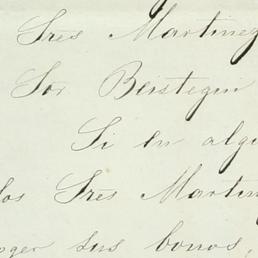 Sres Martinez
Sor Beistegui
Si en algu
los Sres Martin
oger sus bonos,